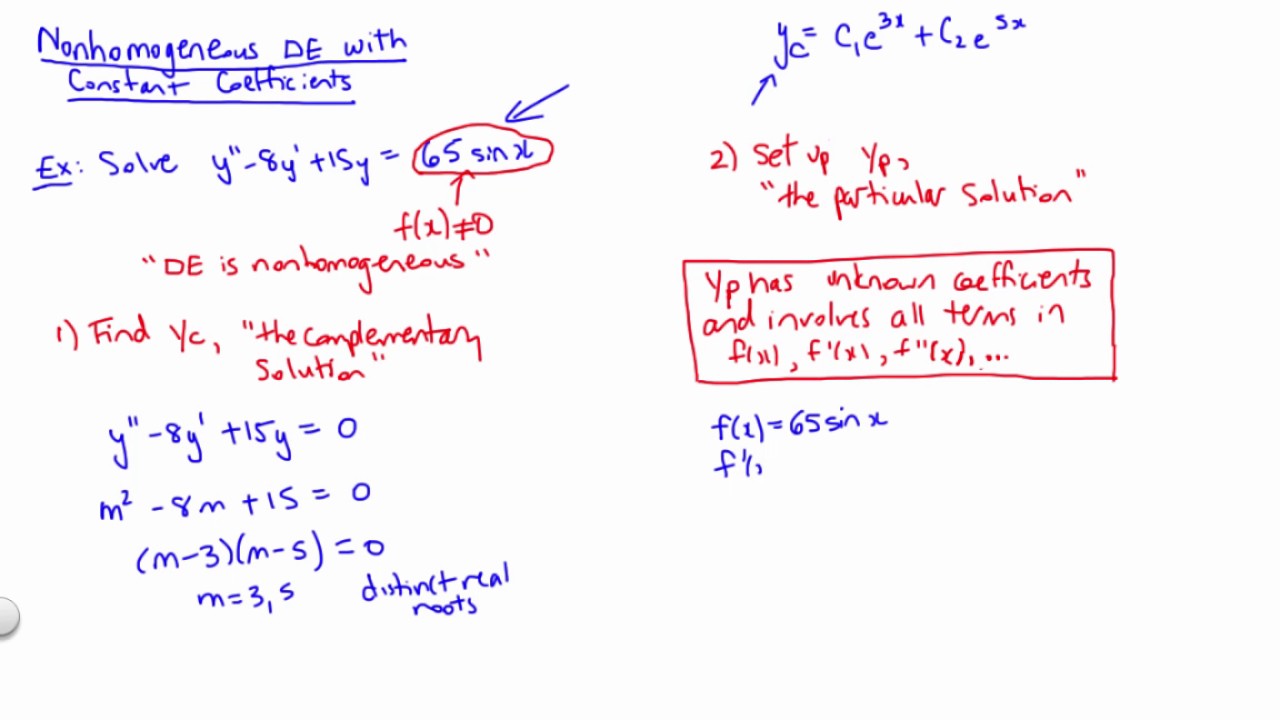 Nonhomogeneous DE with
Constant Coefficients
Ex: Solve y'' - 8y' + 15y = 65 sin x
f(x) ≠ 0
"DE is nonhomogeneous"
1) Find yc, "the complementary
Solution"
y'' - 8y' + 15y = 0
m² - 8m + 15 = 0
(m-3)(m-5) = 0
m = 3, 5 distinct real
roots
yc = C₁e^3x + C₂e^5x
2) Set up Yp,
"the particular Solution"
Yp has unknown coefficients
and involves all terms in
f(x), f'(x), f''(x), ...
f(x) = 65 sin x
f'